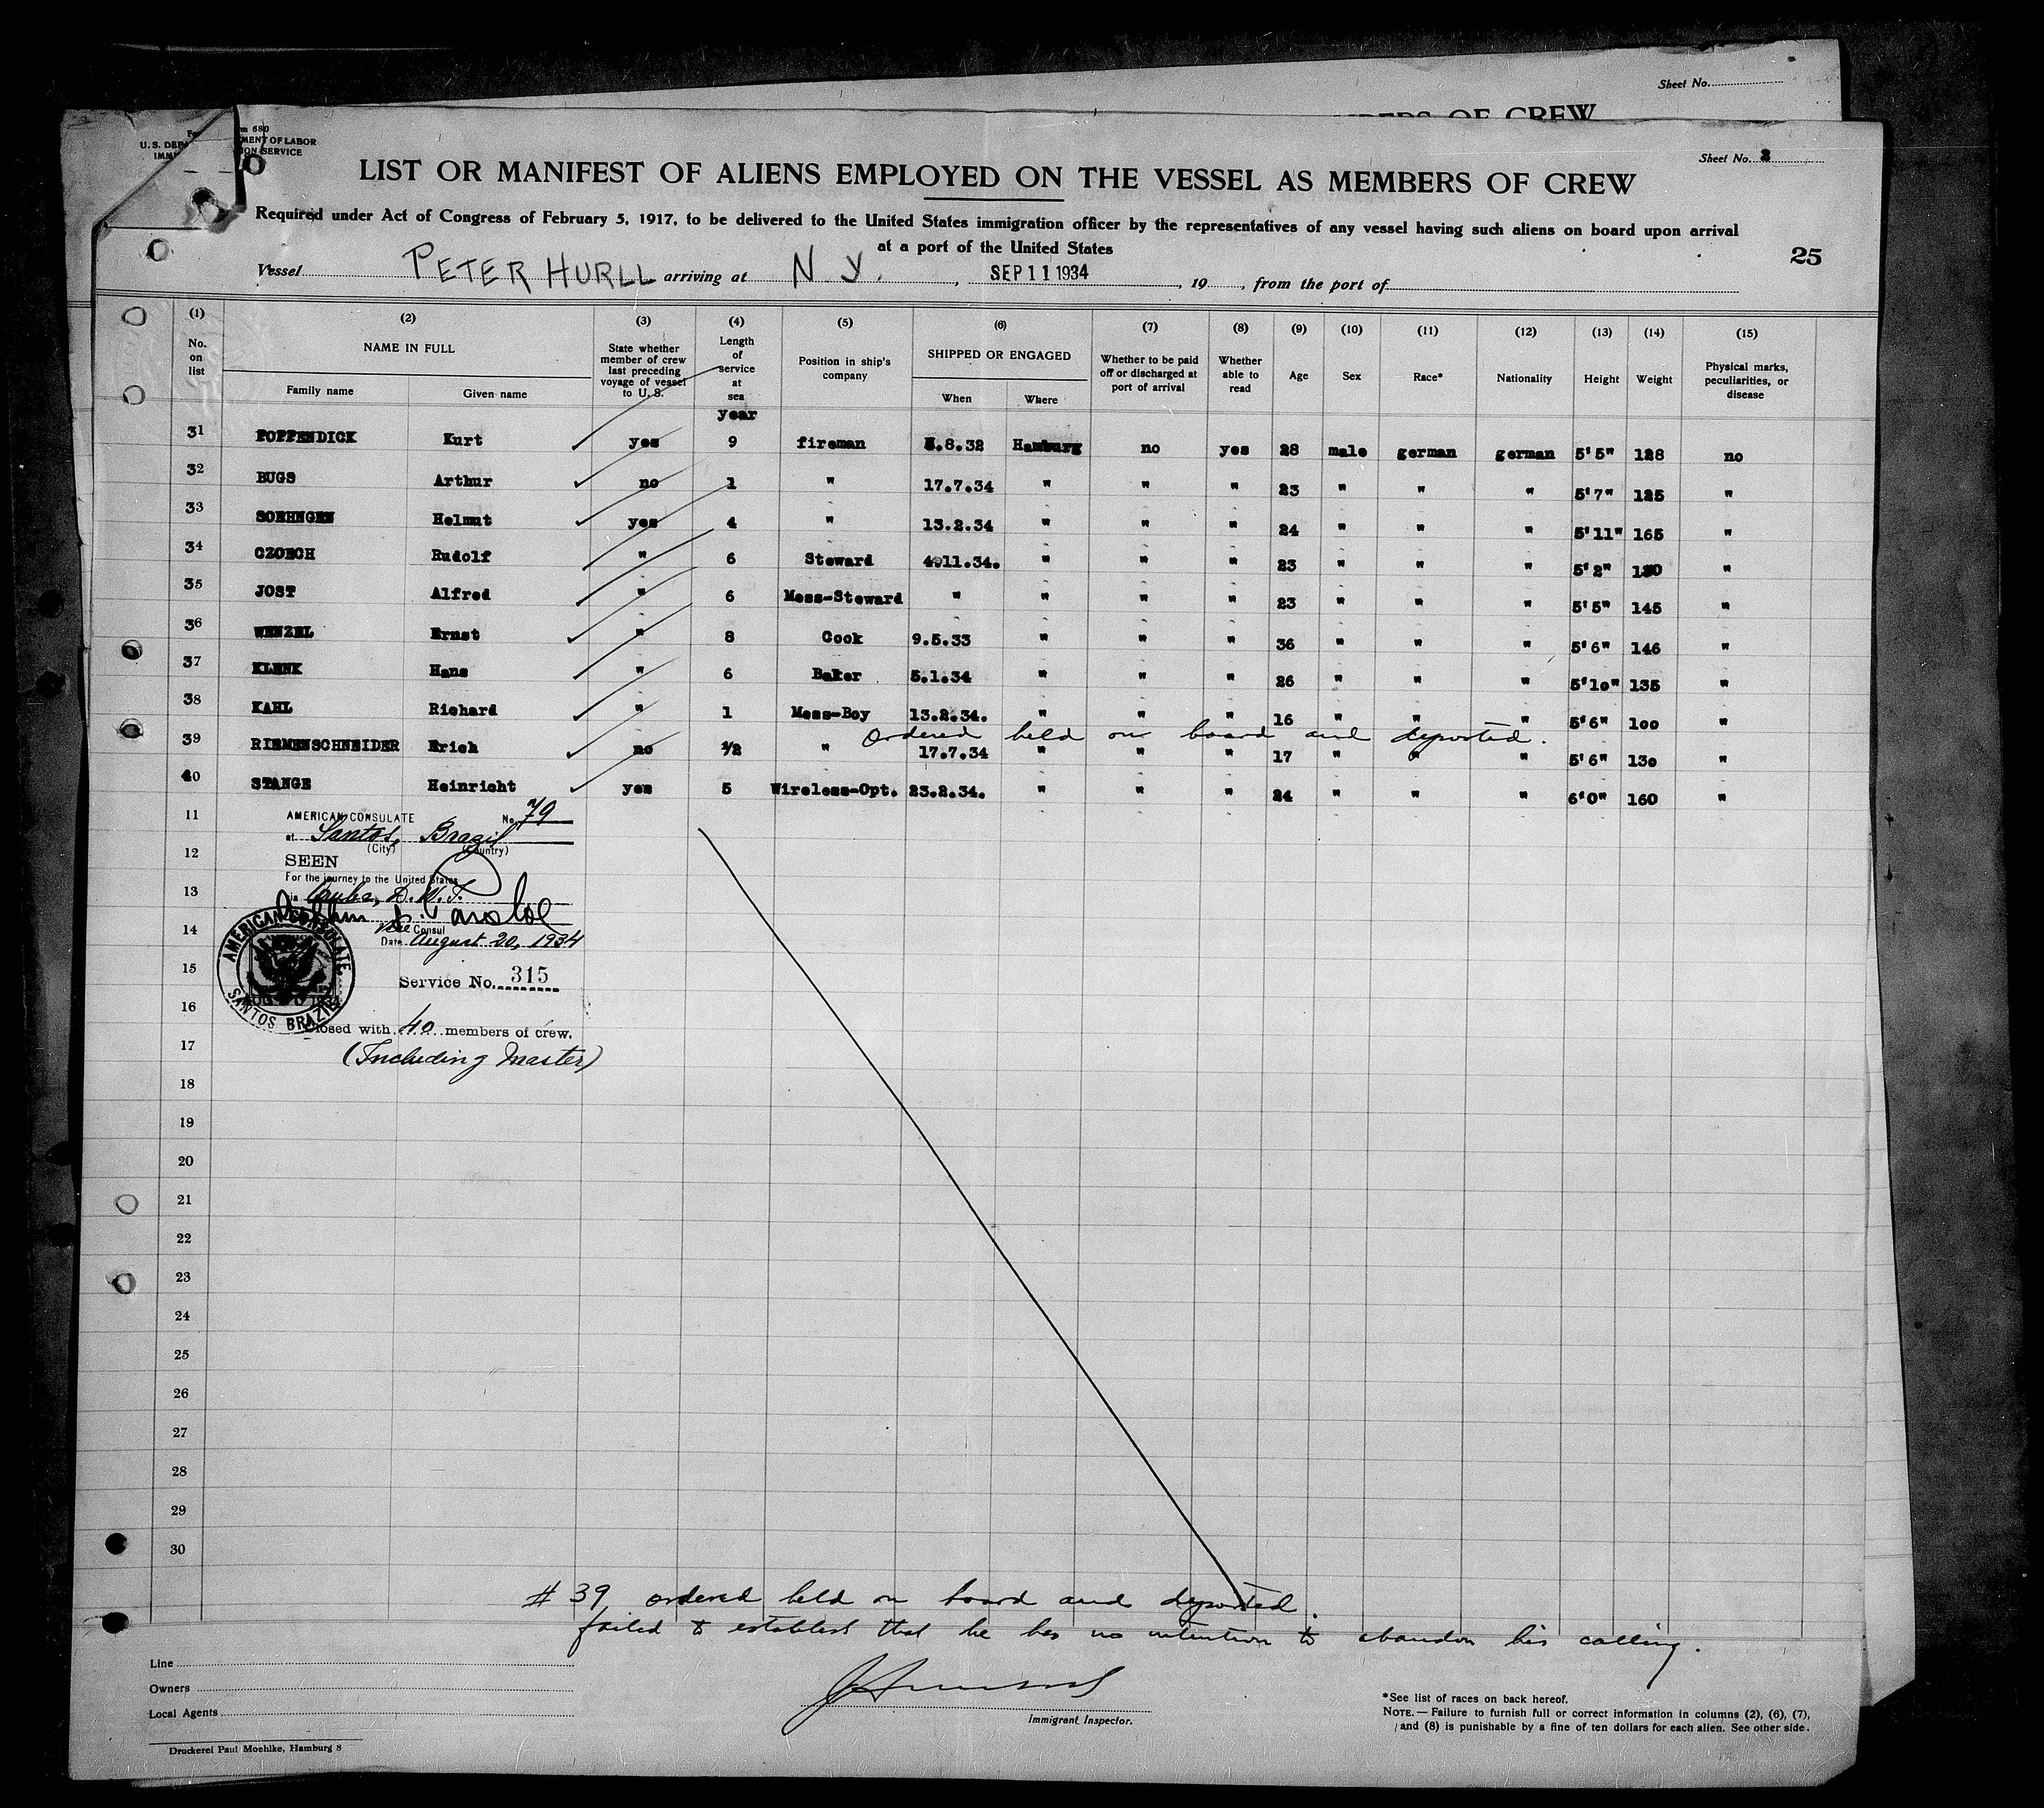 Sheet No.
MBERS OF CREW
Form 680
U. S. DEPARTMENT OF LABOR
IMMIGRATION SERVICE
Sheet No. 2
LIST OR MANIFEST OF ALIENS EMPLOYED ON THE VESSEL AS MEMBERS OF CREW
Required under Act of Congress of February 5, 1917, to be delivered to the United States immigration officer by the representatives of any vessel having such aliens on board upon arrival
at a port of the United States
25
Vessel PETER HURLL arriving at N Y. , SEP 11 1934 , 19 , from the port of
(1) (2) (3) (4) (5) (6) (7) (8) (9) (10) (11) (12) (13) (14) (15)
No. on list
NAME IN FULL
Family name Given name
State whether member of crew last preceding voyage of vessel to U. S.
Length of service at sea
Position in ship's company
SHIPPED OR ENGAGED
When Where
Whether to be paid off or discharged at port of arrival
Whether able to read
Age Sex Race* Nationality Height Weight
Physical marks, peculiarities, or disease
year
31 POPPENDICK Kurt yes 9 fireman .8.32 Hamburg no yes 28 male german german 5'5" 128 no
32 BUGS Arthur no 1 " 17.7.34 " " " 23 " " " 5'7" 125 "
33 SOEHNGEN Helmut yes 4 " 13.2.34 " " " 24 " " " 5'11" 165 "
34 CZOECH Rudolf " 6 Steward 4911.34. " " " 23 " " " 5'2" "
35 JOST Alfred " 6 Mess-Steward " " " " 23 " " " 5'5" 145 "
36 WENZEL Ernst " 8 Cook 9.5.33 " " " 36 " " " 5'6" 146 "
37 KLENK Hans " 6 Baker 5.1.34 " " " 26 " " " 5'10" 135 "
38 KAHL Richard " 1 Mess-Boy 13.2.34. " " " 16 " " " 5'6" 100 "
ordered held on board and deported.
39 RIEMENSCHNEIDER Erich no 1/2 " 17.7.34 " " " 17 " " " 5'6" 130 "
40 STANGE Heinricht yes 5 Wireless-Opt. 23.2.34. " " " 24 " " " 6'0" 160 "
11
12
13
14
15
16
17
18
19
20
21
22
23
24
25
26
27
28
29
30
AMERICAN CONSULATE No. 79
at Santos, Brazil
(City) (Country)
SEEN
For the journey to the United States
in Aruba, D.W.I.
Vice Consul
Date August 20, 1934
AMERICAN CONSULATE
SANTOS BRAZIL
Service No. 315
Closed with 40 members of crew.
(Including Master)
# 39 ordered held on board and deported.
failed to establish that he has no intention to abandon his calling.
Line
Owners
Local Agents
Immigrant Inspector.
*See list of races on back hereof.
NOTE. — Failure to furnish full or correct information in columns (2), (6), (7),
and (8) is punishable by a fine of ten dollars for each alien. See other side.
Druckerei Paul Moehlke, Hamburg 8